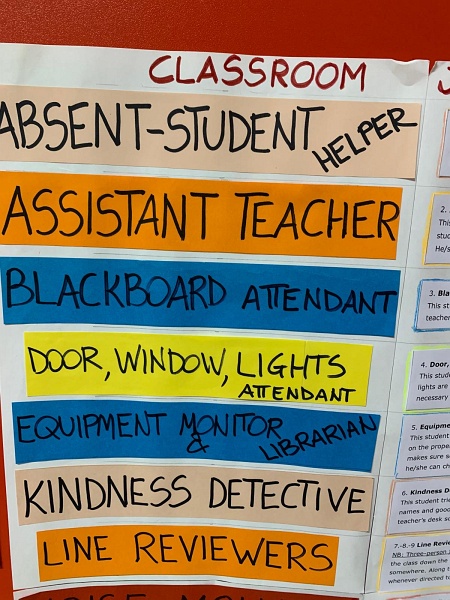 CLASSROOM
ABSENT-STUDENT
HELPER
ASSISTANT TEACHER
BLACKBOARD ATTENDANT
DOOR, WINDOW, LIGHTS
ATTENDANT
EQUIPMENT MONITOR
& LIBRARIAN
KINDNESS DETECTIVE
LINE REVIEWERS
2.
This
stud
He/s
3. Bla
This stu
teacher
4. Door,
This stud
lights are
necessary
5. Equipme
This student
on the prope
makes sure s
he/she can ch
6. Kindness D
This student trie
names and good
teacher's desk so
7.-8.-9 Line Revie
NB: Three-person j
the class down the
somewhere. Along t
whenever directed t